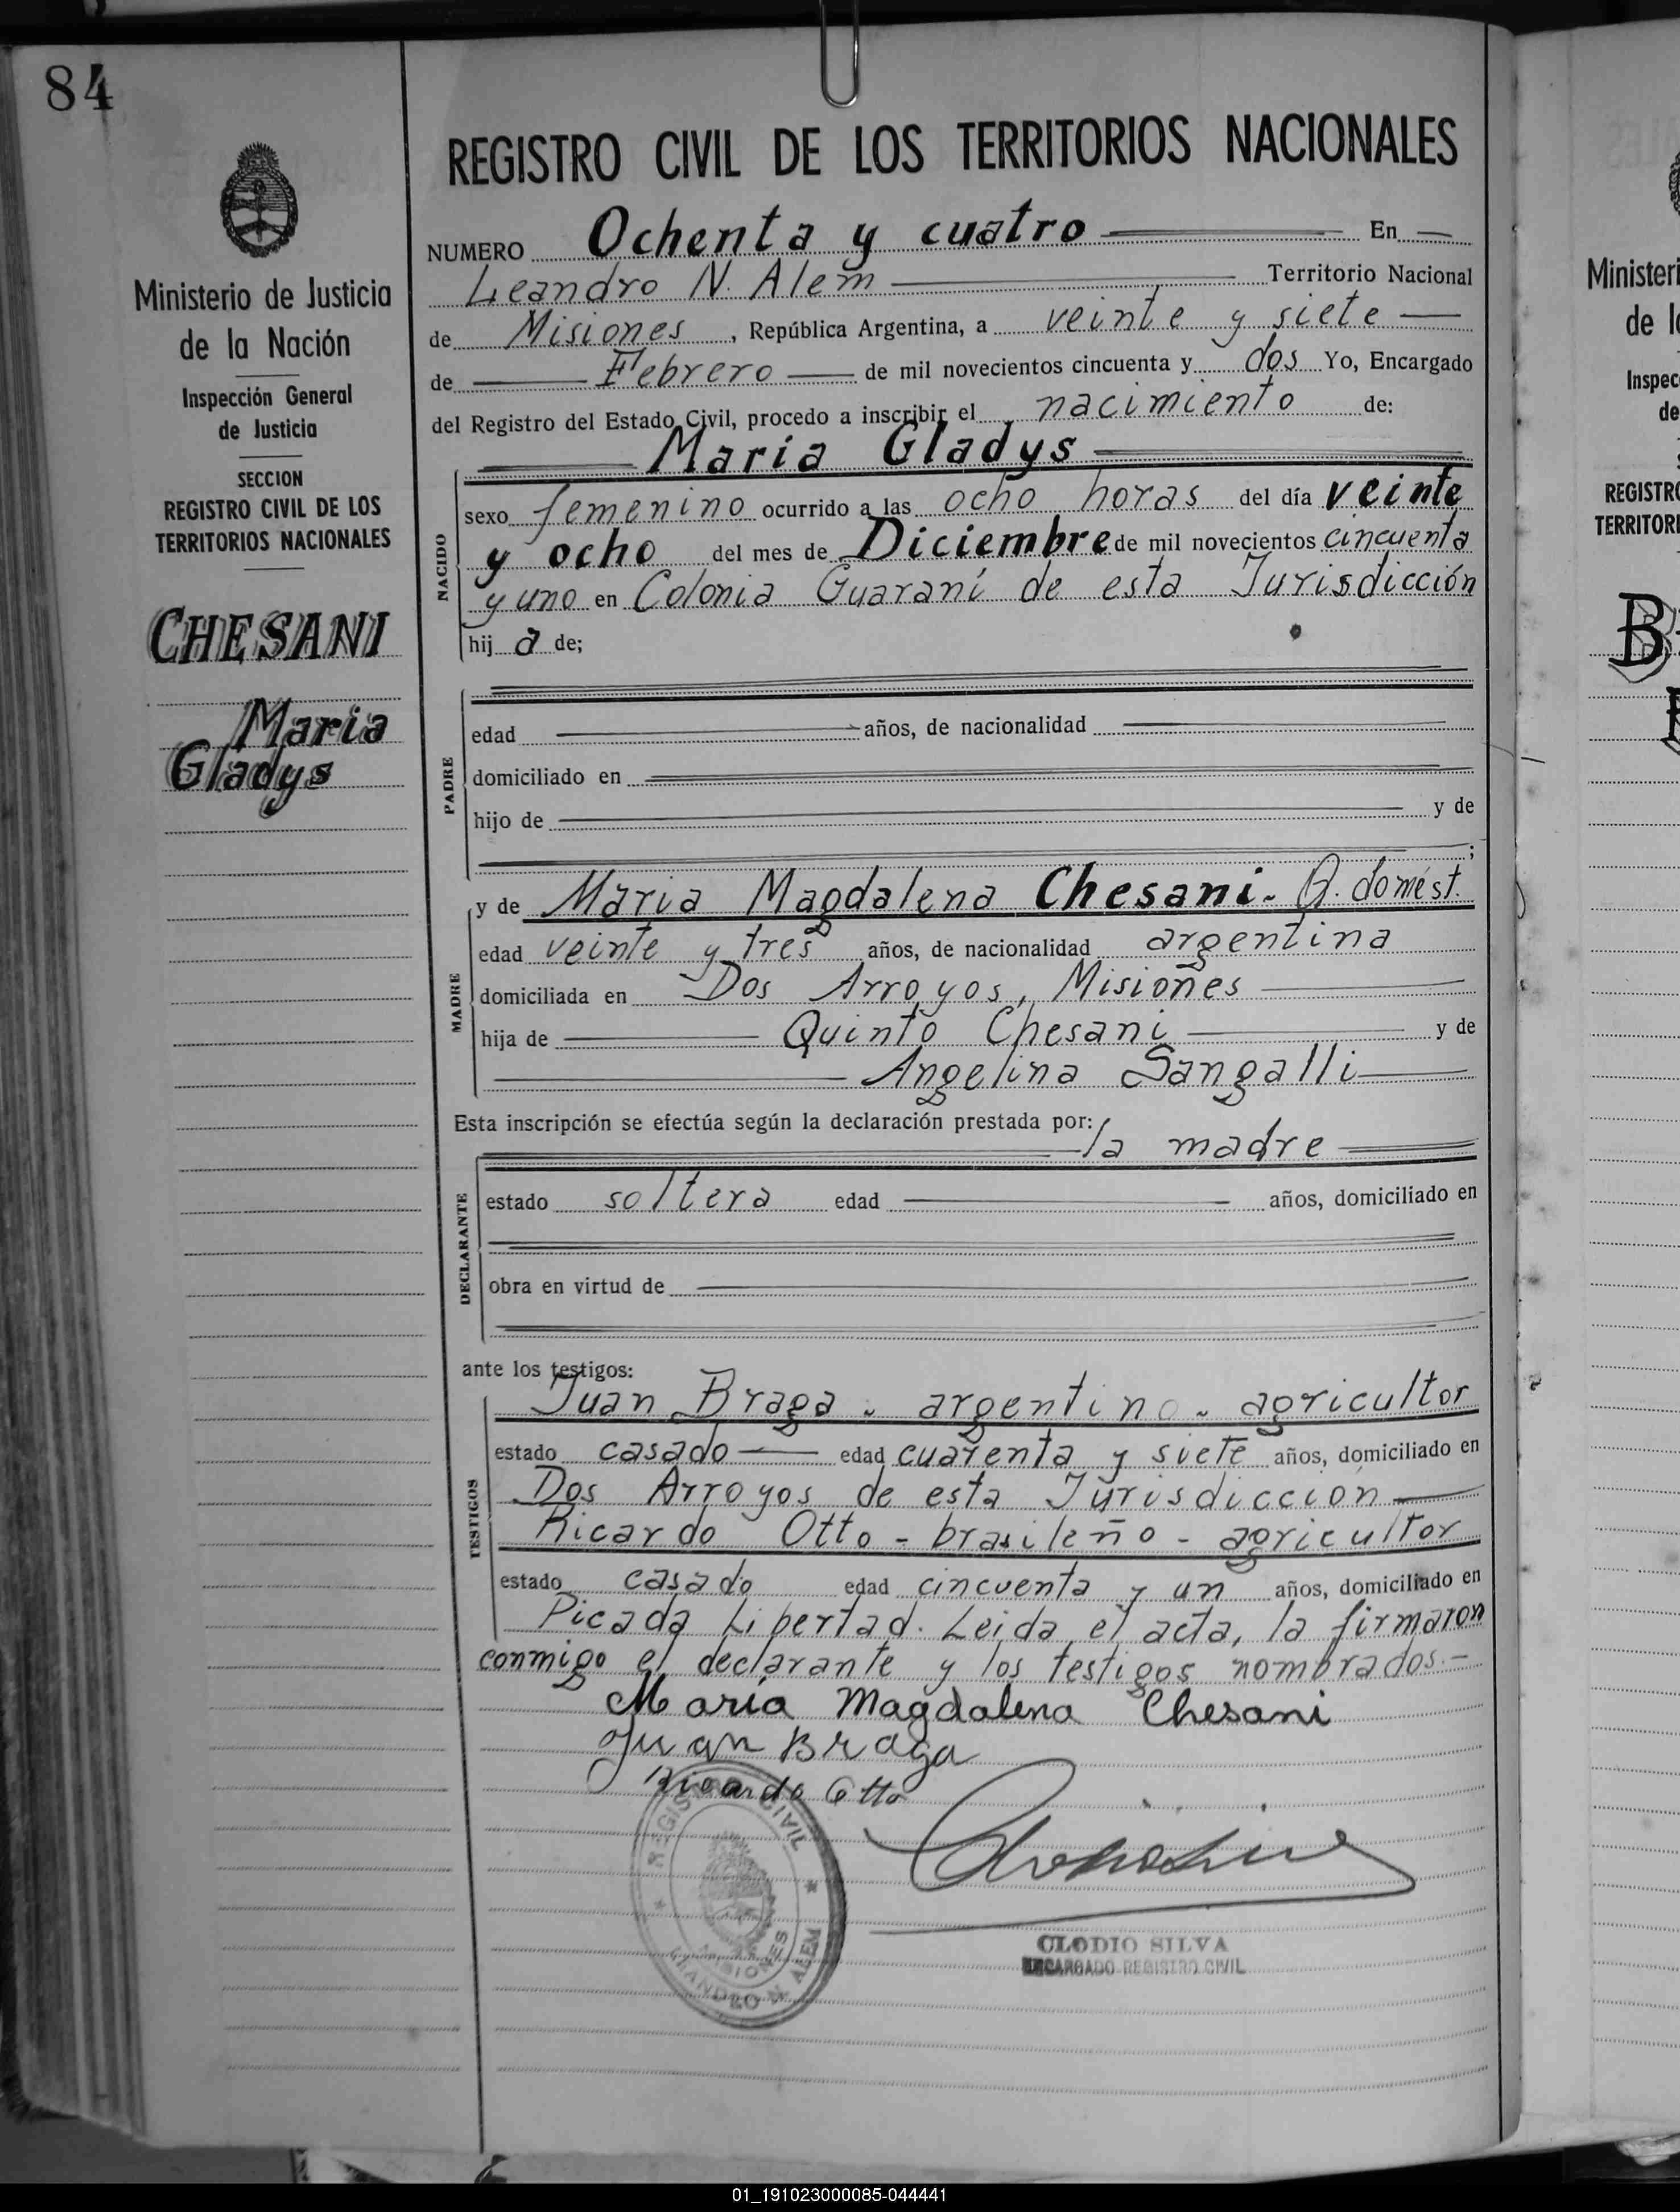 84
Ministerio de Justicia
de la Nación
Inspección General
de Justicia
SECCION
REGISTRO CIVIL DE LOS
TERRITORIOS NACIONALES
CHESANI
Maria
Gladys
REGISTRO CIVIL DE LOS TERRITORIOS NACIONALES
NUMERO Ochenta y cuatro En
Leandro N. Alem Territorio Nacional
de Misiones, República Argentina, a veinte y siete
de Febrero de mil novecientos cincuenta y dos Yo, Encargado
del Registro del Estado Civil, procedo a inscribir el nacimiento de:
Maria Gladys
NACIDO
sexo femenino ocurrido a las ocho horas del día veinte
y ocho del mes de Diciembre de mil novecientos cincuenta
y uno en Colonia Guaraní de esta Jurisdicción
hij a de;
PADRE
edad años, de nacionalidad
domiciliado en
hijo de y de
;
MADRE
y de Maria Magdalena Chesani. Q. domést.
edad veinte y tres años, de nacionalidad argentina
domiciliada en Dos Arroyos, Misiones
hija de Quinto Chesani y de
Angelina Sangalli
Esta inscripción se efectúa según la declaración prestada por:
la madre
DECLARANTE
estado soltera edad años, domiciliado en
obra en virtud de
ante los testigos:
TESTIGOS
Juan Braga - argentino - agricultor
estado casado edad cuarenta y siete años, domiciliado en
Dos Arroyos de esta Jurisdicción
Ricardo Otto - brasileño - agricultor
estado casado edad cincuenta y un años, domiciliado en
Picada Libertad. Leida el acta, la firmaron
conmigo el declarante y los testigos nombrados.-
Maria Magdalena Chesani
Juan Braga
Ricardo Otto
REGISTRO CIVIL
MISIONES
LEANDRO N. ALEM
CLODIO SILVA
ENCARGADO REGISTRO CIVIL
Ministeri
de l
Inspec
de
REGISTRO
TERRITORI
B
01_191023000085-044441